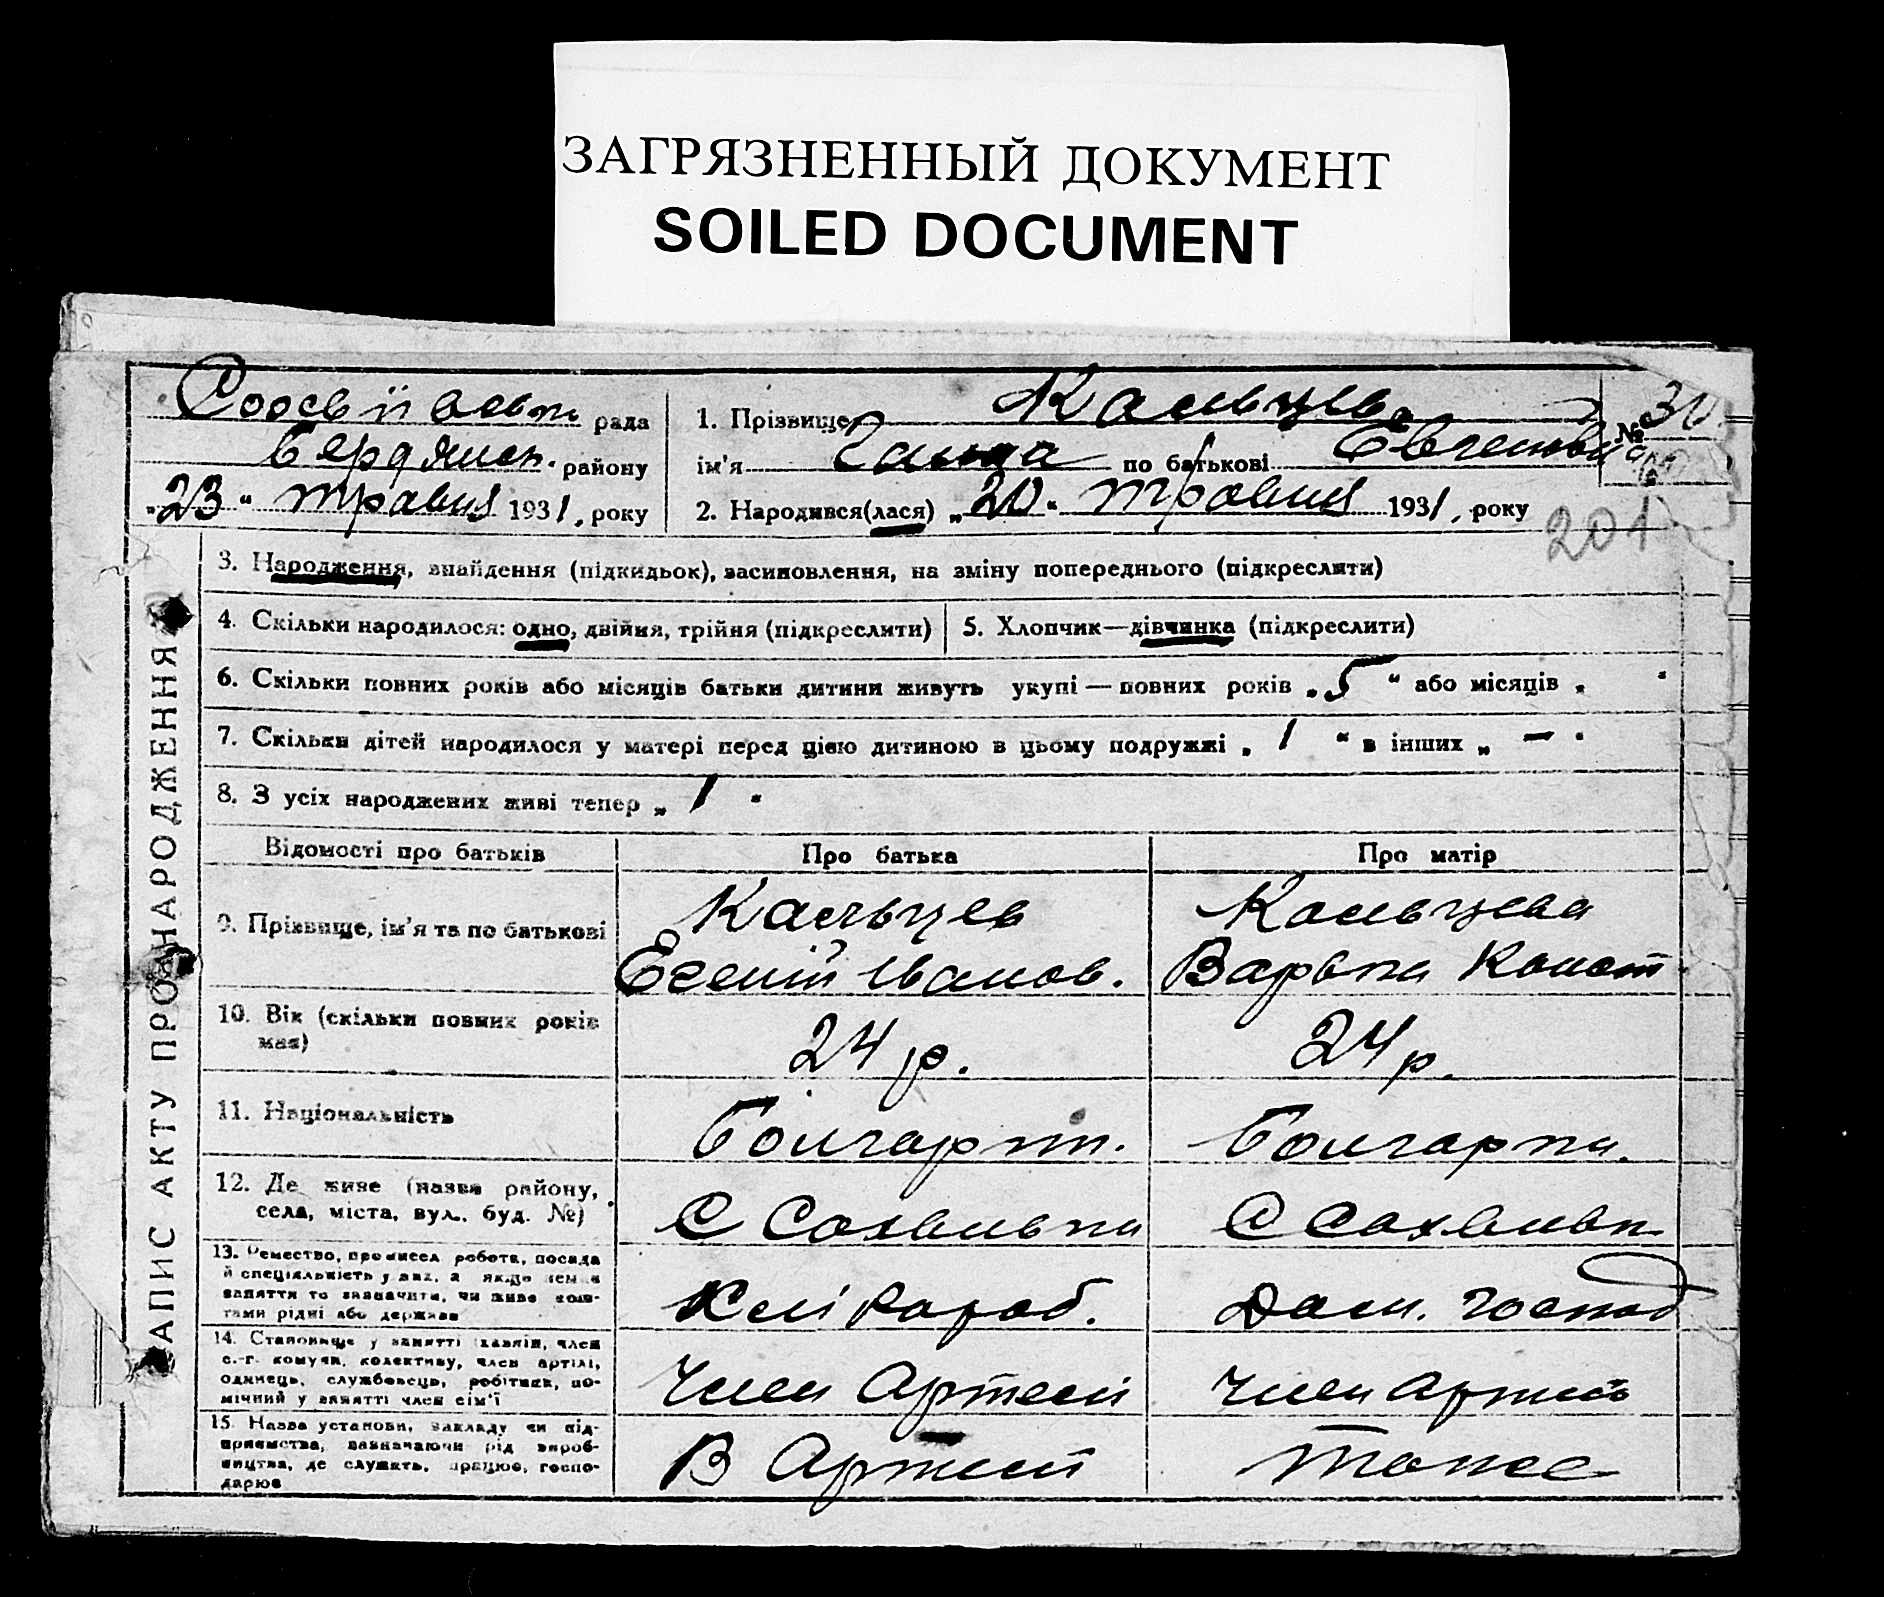 ЗАГРЯЗНЕННЫЙ ДОКУМЕНТ
SOILED DOCUMENT
рада
Бердянськ. району
"23" травня 1931, року
1. Прізвище Кальцева
ім'я Ганна по батькові Евгеновна
2. Народився(лася) "20" травня 1931, року
№ 30
201
ЗАПИС АКТУ ПРО НАРОДЖЕННЯ
3. Народження, знайдення (підкидьок), засиновлення, на зміну попереднього (підкреслити)
4. Скільки народилося: одно, двійня, трійня (підкреслити)
5. Хлопчик—дівчинка (підкреслити)
6. Скільки повних років або місяців батьки дитини живуть укупі — повних років "5" або місяців " "
7. Скільки дітей народилося у матері перед цією дитиною в цьому подружжі "1" в інших "—"
8. З усіх народжених живі тепер "1"
Відомості про батьків
Про батька
Про матір
9. Прізвище, ім'я та по батькові
Кальцев
Евгеній Іванов.
Кальцева
Варвка Конст
10. Вік (скільки повних років має)
24 р.
24 р.
11. Національність
Болгарин.
Болгарка.
12. Де живе (назва району,
села, міста, вул., буд. №)
С
С
13. Ремество, промисел робота, посада
й спеціяльність у них, а якщо нема
заняття то зазначити, чи живе кош-
тами рідні або держави
Хліборроб.
Дом. господ
14. Становище у занятті (хазяїн, член
с.-г. комуни, колективу, член артілі,
одинець, службовець, робітник, по-
мічний у занятті член сім'ї
Член Артелі
Член Артілі
15. Назва установи, закладу чи під-
приємства, зазначаючи рід вироб-
ництва, де служить, працює, госпо-
дарює
В Артілі
тоже